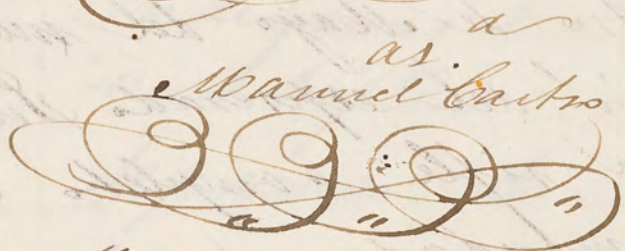 as. a
Manuel Castro